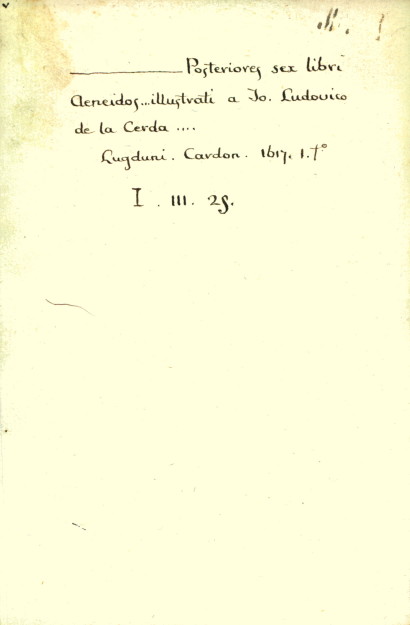 Posteriores sex libri
Aeneidos...illustrati a Io. Ludovico
de la Cerda ....
Lugduni. Cardon. 1617. 1. fº
I. III. 25.